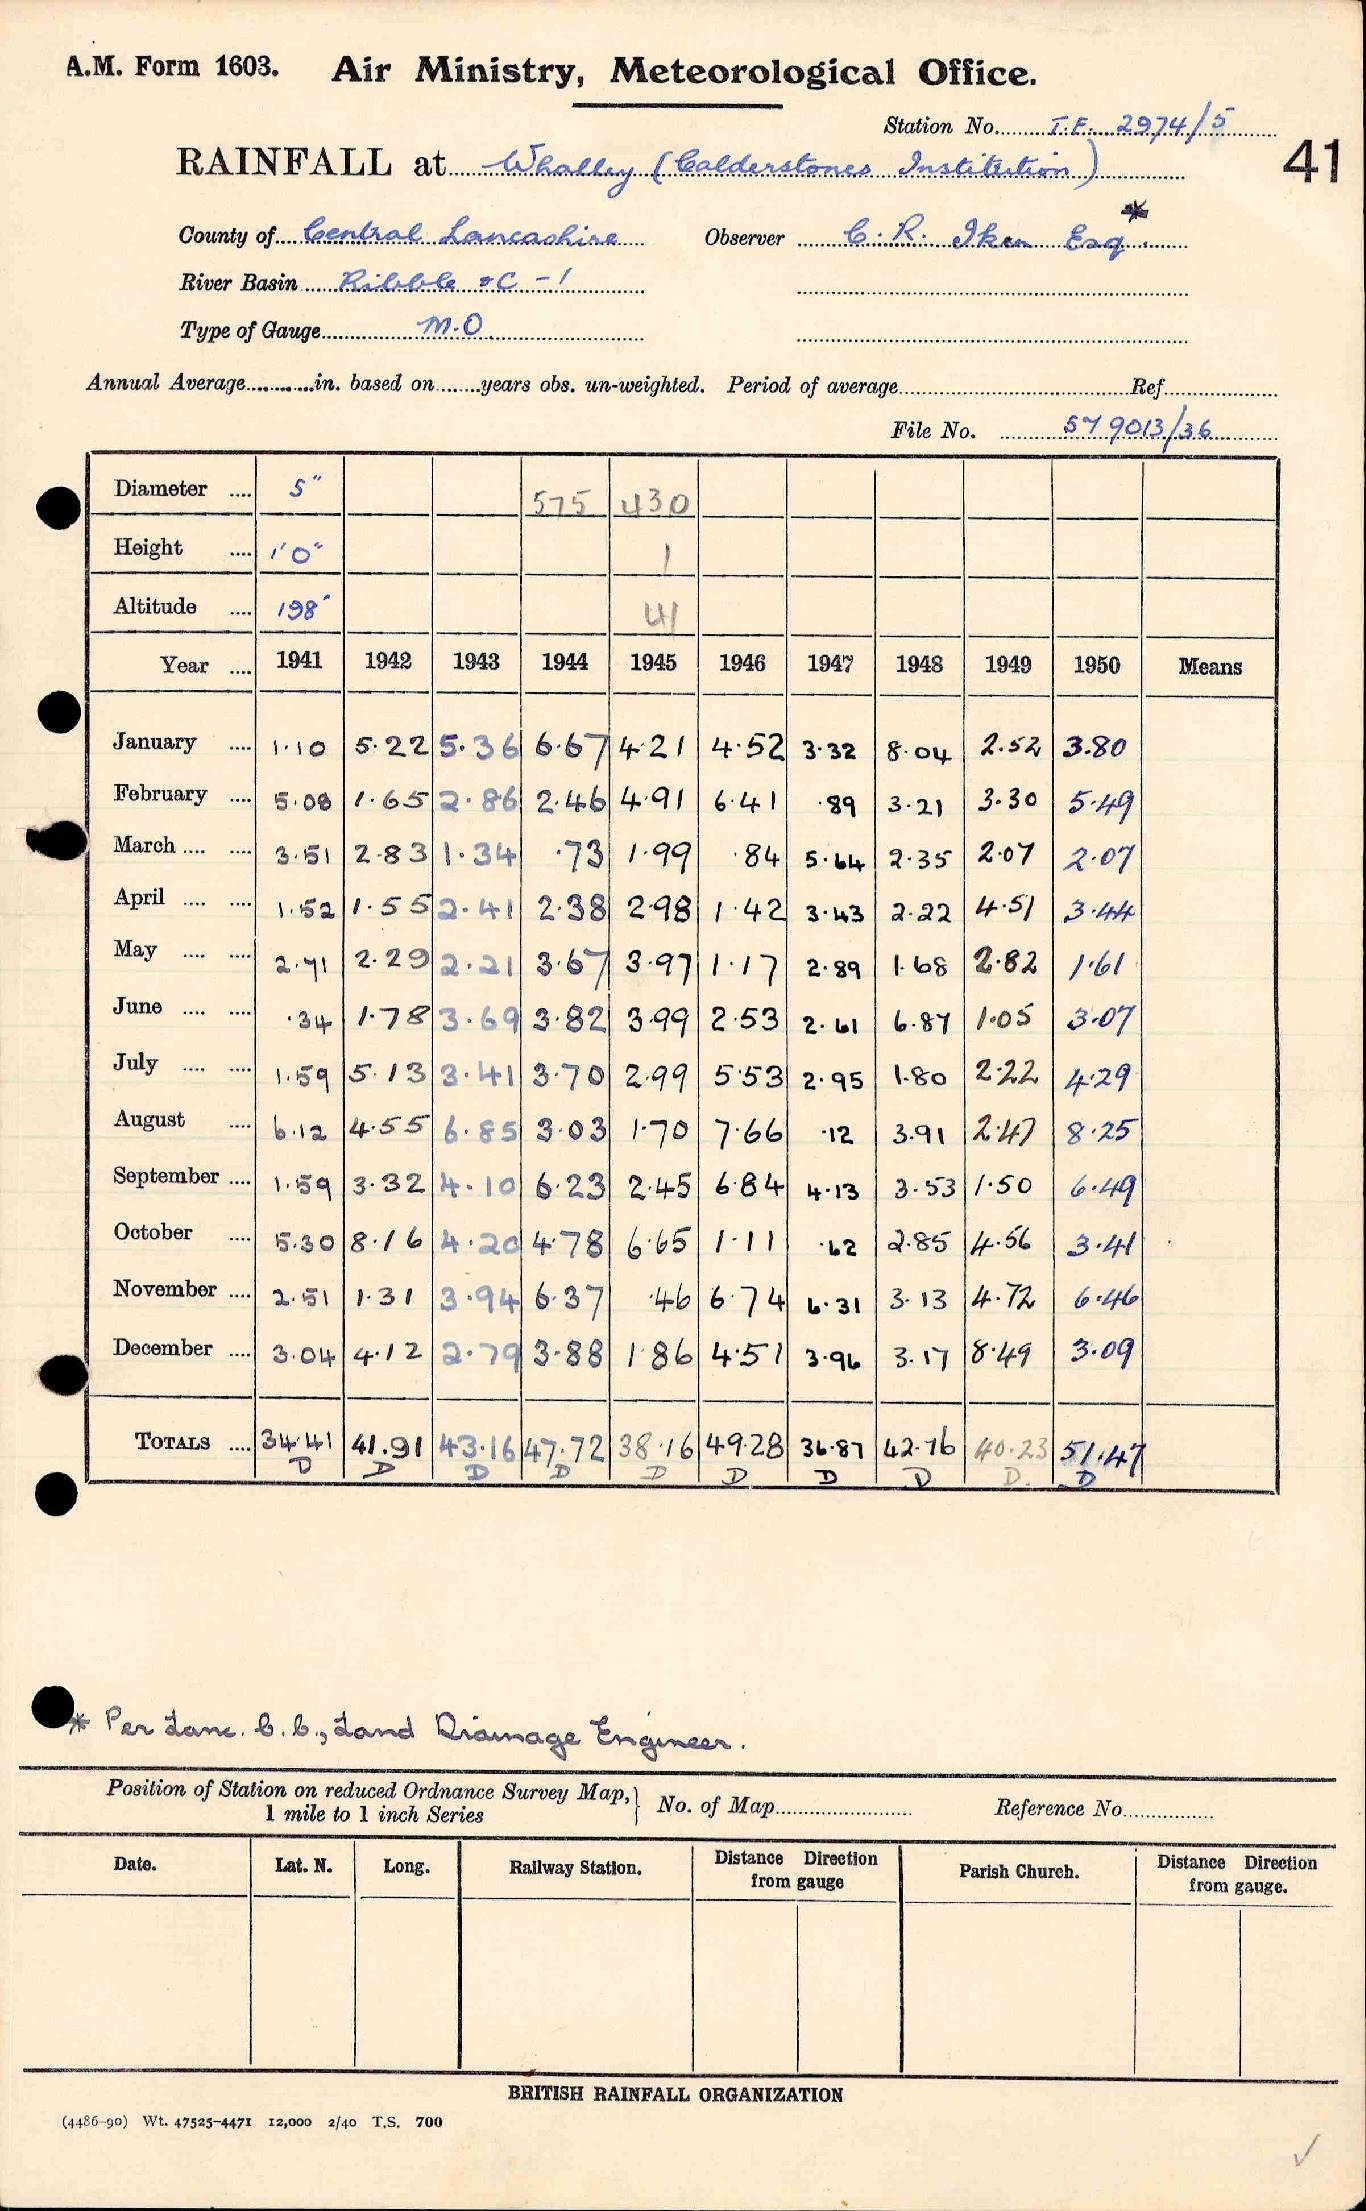 A.M. Form 1603. Air Ministry, Meteorological Office.
Station No. T.F. 2974/5
41
RAINFALL at Whalley (Calderstones Institution)
County of Central Lancashire Observer C. R. Iken Esq *
River Basin Ribble &C - 1
Type of Gauge M.O.
Annual Average in. based on years obs. un-weighted. Period of average Ref.
File No. 579013/36
Diameter .... 5" 575 430
Height .... 1'0" 1
Altitude .... 198' 41
Year .... 1941 1942 1943 1944 1945 1946 1947 1948 1949 1950 Means
January .... 1.10 5.22 5.36 6.67 4.21 4.52 3.32 8.04 2.52 3.80
February .... 5.08 1.65 2.86 2.46 4.91 6.41 .89 3.21 3.30 5.49
March .... .... 3.51 2.83 1.34 .73 1.99 .84 5.64 2.35 2.07 2.07
April .... .... 1.52 1.55 2.41 2.38 2.98 1.42 3.43 2.22 4.51 3.44
May .... .... 2.71 2.29 2.21 3.67 3.97 1.17 2.89 1.68 2.82 1.61
June .... .... .34 1.78 3.69 3.82 3.99 2.53 2.61 6.87 1.05 3.07
July .... .... 1.59 5.13 3.41 3.70 2.99 5.53 2.95 1.80 2.22 4.29
August .... 6.12 4.55 6.85 3.03 1.70 7.66 .12 3.91 2.47 8.25
September .... 1.59 3.32 4.10 6.23 2.45 6.84 4.13 3.53 1.50 6.49
October .... 5.30 8.16 4.20 4.78 6.65 1.11 .62 2.85 4.56 3.41
November .... 2.51 1.31 3.94 6.37 .46 6.74 6.31 3.13 4.72 6.46
December .... 3.04 4.12 2.79 3.88 1.86 4.51 3.96 3.17 8.49 3.09
TOTALS .... 34.41 41.91 43.16 47.72 38.16 49.28 36.87 42.76 40.23 51.47
D D D D D D D D D. D
* Per Lanc. C.C., Land Drainage Engineer.
Position of Station on reduced Ordnance Survey Map, 1 mile to 1 inch Series } No. of Map Reference No.
Date. Lat. N. Long. Railway Station. Distance Direction from gauge Parish Church. Distance Direction from gauge.
BRITISH RAINFALL ORGANIZATION
(4486-90) Wt. 47525-4471 12,000 2/40 T.S. 700